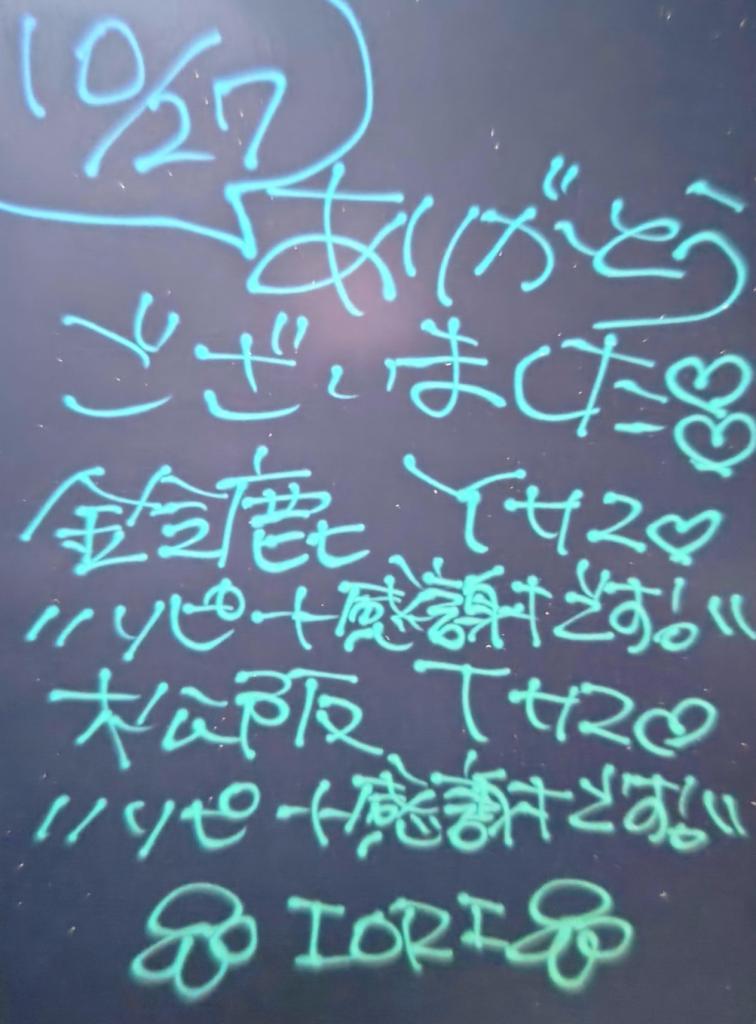 10/27
ありがとう
ございました♡♡
鈴鹿 Yサマ♡
〃リピート感謝です!〃
松阪 Tサマ♡
〃リピート感謝です!〃
IORI